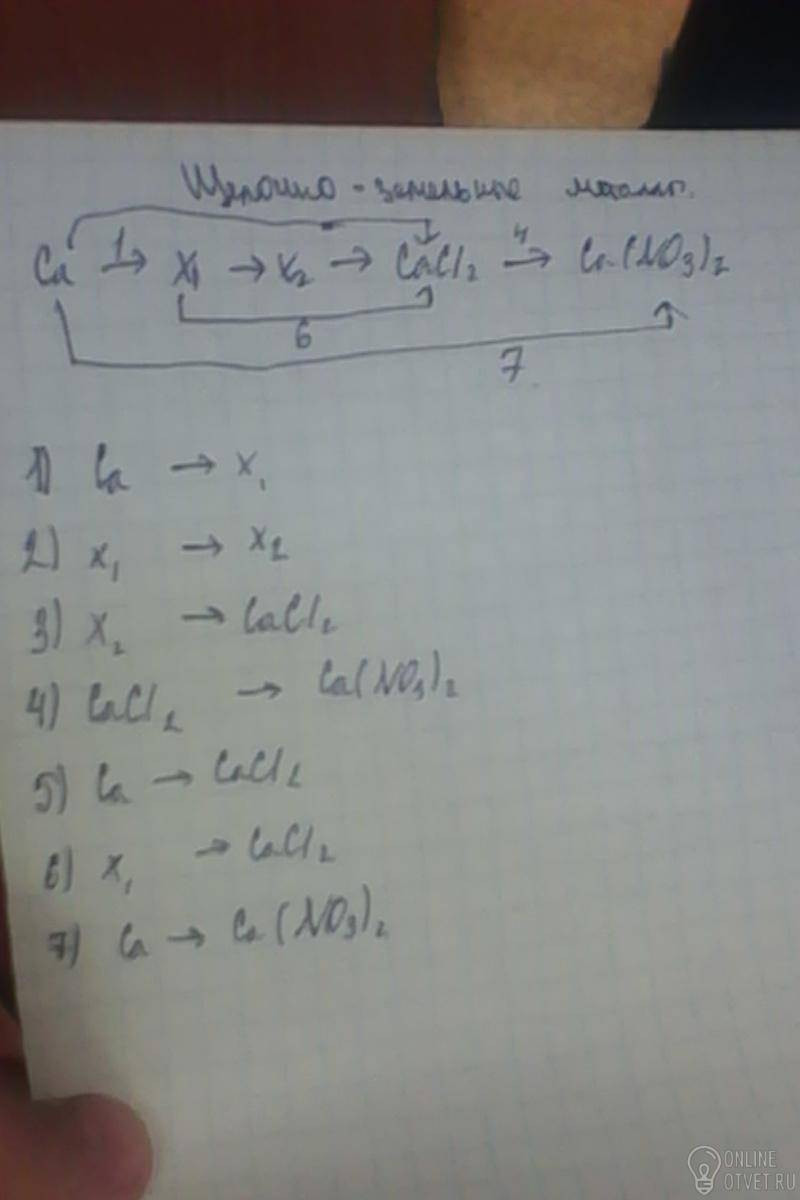 Щелочно-земельные металлы.
Ca 1→ X₁ → X₂ → CaCl₂ 4→ Ca(NO₃)₂
6
7
1) Ca → X₁
2) X₁ → X₂
3) X₂ → CaCl₂
4) CaCl₂ → Ca(NO₃)₂
5) Ca → CaCl₂
6) X₁ → CaCl₂
7) Ca → Ca(NO₃)₂
ONLINE
OTVET.RU